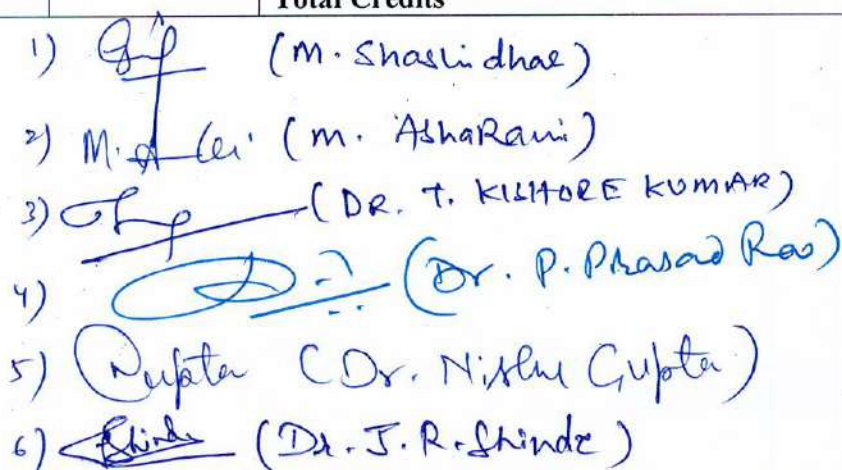 Total Credits
1) (M. Shashidhar)
2) M. A (M. AshaRani)
3) (DR. T. KISHORE KUMAR)
4) (Dr. P. Prasad Rao)
5) Gupta (Dr. Nishu Gupta)
6) Shinde (Dr. J. R. Shinde)